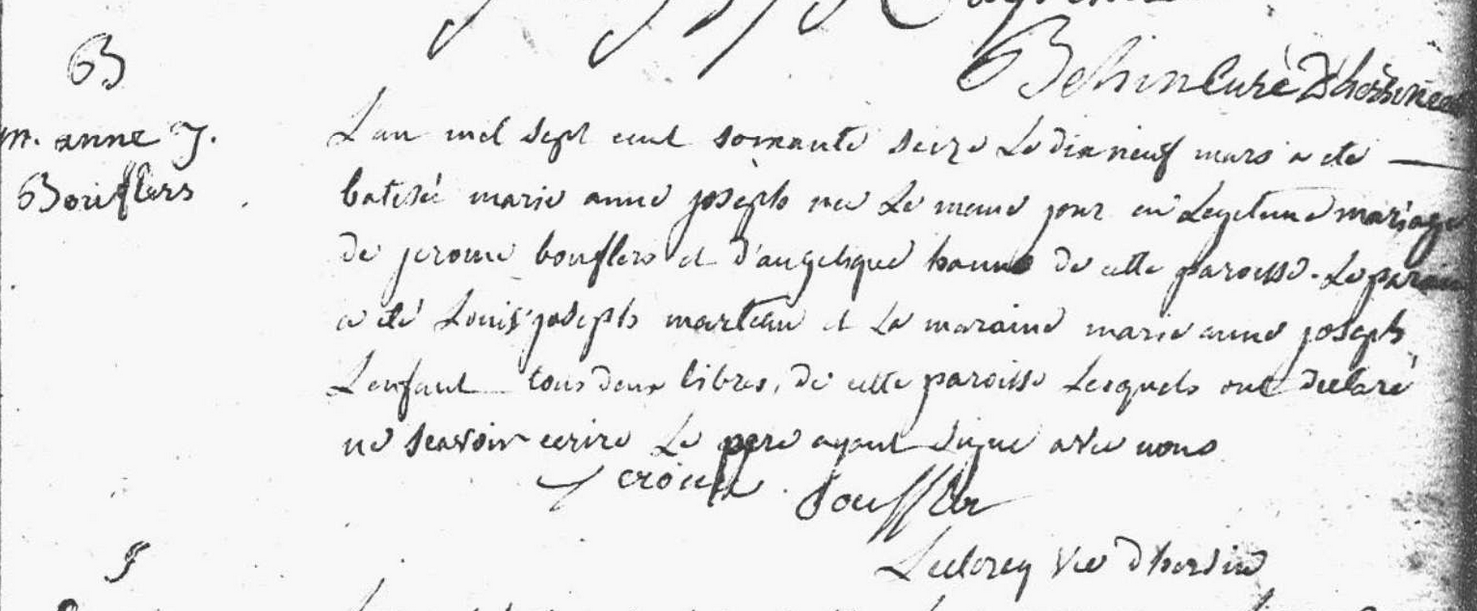 Behin Curé D'horsinea
B
m. anne J.
Bouflers
L'an mil sept cent soixante seize Le dix neuf mars a eté
batisée marie anne joseph née Le meme jour en Legitime mariage
de jerome bouflers et d'angelique hanne de cette paroisse. Le parain
a eté Louis joseph marteau et La maraine marie anne joseph
Lenfant tous deux libres, de cette paroisse Lesquels ont declaré
ne scavoir ecrire Le pere ayant signé avec nous
Bouffler
Leclercq Vic d'horsin